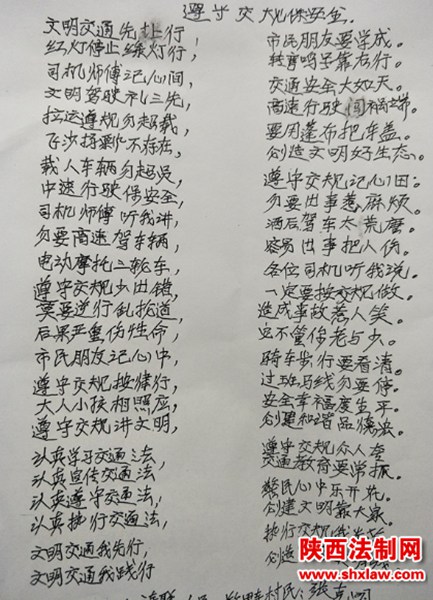 遵守交规保安全
文明交通先让行,
红灯停止绿灯行,
司机师傅记心间,
文明驾驶礼三先,
拉运遵规勿超载,
飞沙扬尘不存在,
载人车辆勿超员,
中速行驶保安全,
司机师傅听我讲,
勿要高速驾车辆,
电动摩托二轮车,
遵守交规少出错,
莫要逆行乱抢道,
后果严重伤性命,
市民朋友记心中,
遵守交规按律行,
大人小孩相照应,
遵守交规讲文明,
认真学习交通法,
认真宣传交通法
认真遵守交通法,
认真执行交通法,
文明交通我先行,
文明交通我践行
市民朋友要学成。
转弯鸣子靠右行。
交通安全大如天。
高速行驶闯祸端。
要用蓬布把车盖。
创造文明好生态。
遵守交规记心田。
勿要出事惹麻烦。
酒后驾车太荒磨。
容易出事把人伤。
各位司机听我说。
一定要按交规做。
造成事故惹人笑。
定不管你老与少。
骑车步行要看清。
过斑马线勿要停。
安全幸福度生平。
创建和谐品德宏。
遵守交规众人夸
交通教育要常抓。
人民心中乐开花。
创建文明靠大家。
执行交规我
创造
村民:张
陕西法制网
www.shxlaw.com